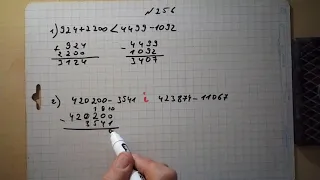 №256
1) 924+2200 < 4499-1092
+ 924 - 4499
2200 1092
3124 3407
2) 420200-3541 i 423874-11067
1 9 10
- 420200
3541